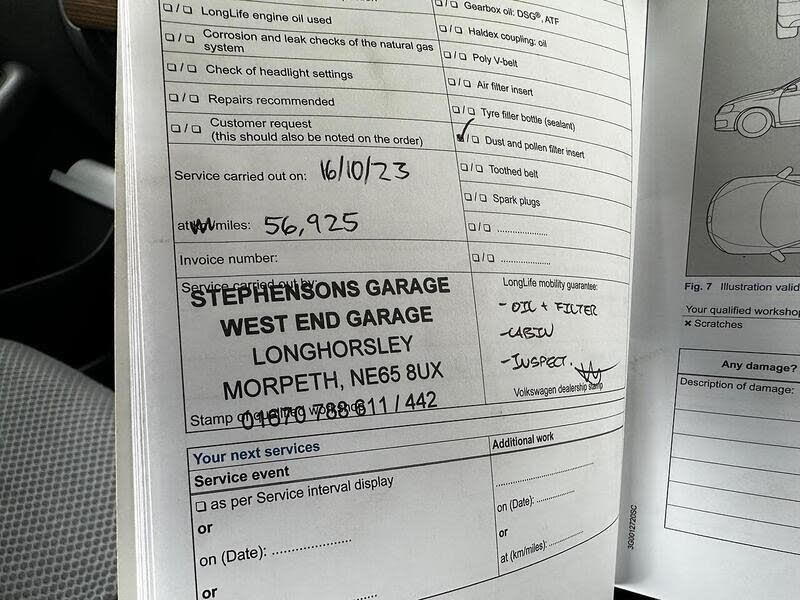 ❏ / ❏ LongLife engine oil used
❏ / ❏ Corrosion and leak checks of the natural gas
system
❏ / ❏ Check of headlight settings
❏ / ❏ Repairs recommended
❏ / ❏ Customer request
(this should also be noted on the order)
❏ / ❏ Gearbox oil: DSG®, ATF
❏ / ❏ Haldex coupling: oil
❏ / ❏ Poly V-belt
❏ / ❏ Air filter insert
❏ / ❏ Tyre filler bottle (sealant)
❏ / ❏ Dust and pollen filter insert
❏ / ❏ Toothed belt
❏ / ❏ Spark plugs
❏ / ❏ ..............
❏ / ❏ ..............
Service carried out on: 16/10/23
at /miles: 56,925
Invoice number:
Service carried out by:
STEPHENSONS GARAGE
WEST END GARAGE
LONGHORSLEY
MORPETH, NE65 8UX
01670 788 611 / 442
Stamp of qualified workshop
LongLife mobility guarantee:
- OIL + FILTER
- CABIN
- INSPECT.
Volkswagen dealership stamp
Your next services
Service event
❏ as per Service interval display
or
on (Date): ....................
or
Additional work
..........................
on (Date): ............
or
at (km/miles): ...........
3G0012720SC
Fig. 7 Illustration valid
Your qualified workshop
× Scratches
Any damage?
Description of damage: